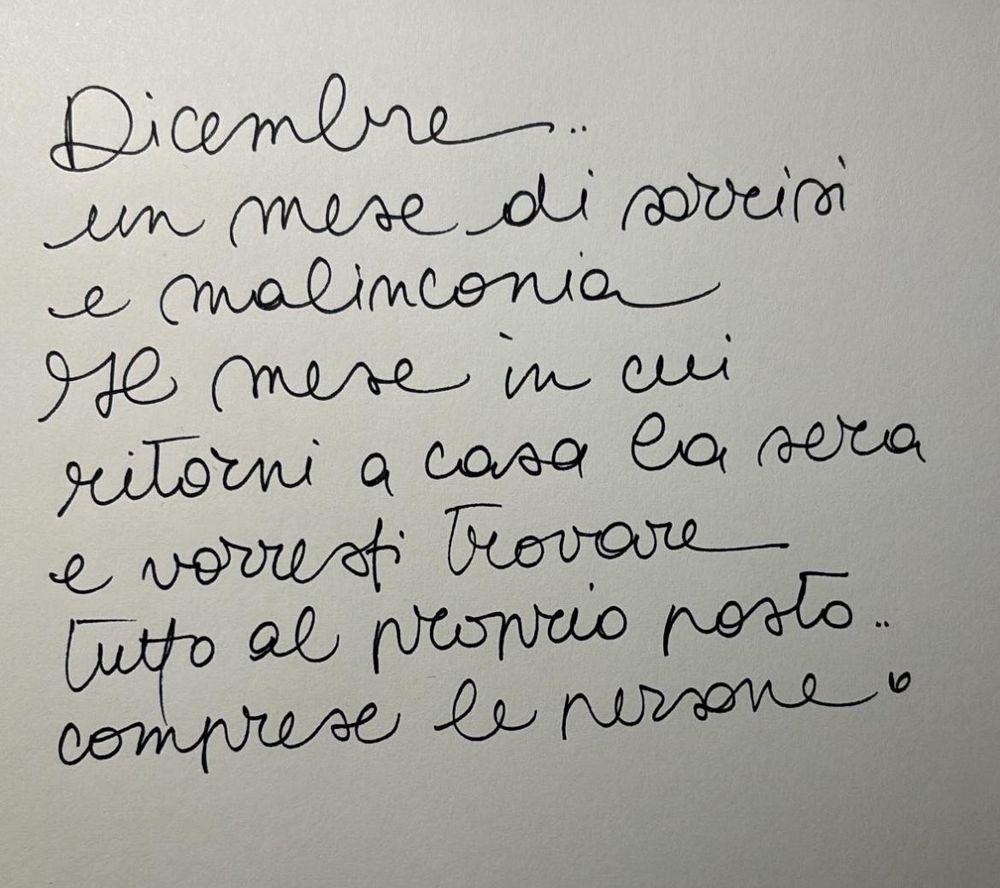 Dicembre..
un mese di sorrisi
e malinconia
Il mese in cui
ritorni a casa la sera
e vorresti trovare
tutto al proprio posto..
comprese le persone